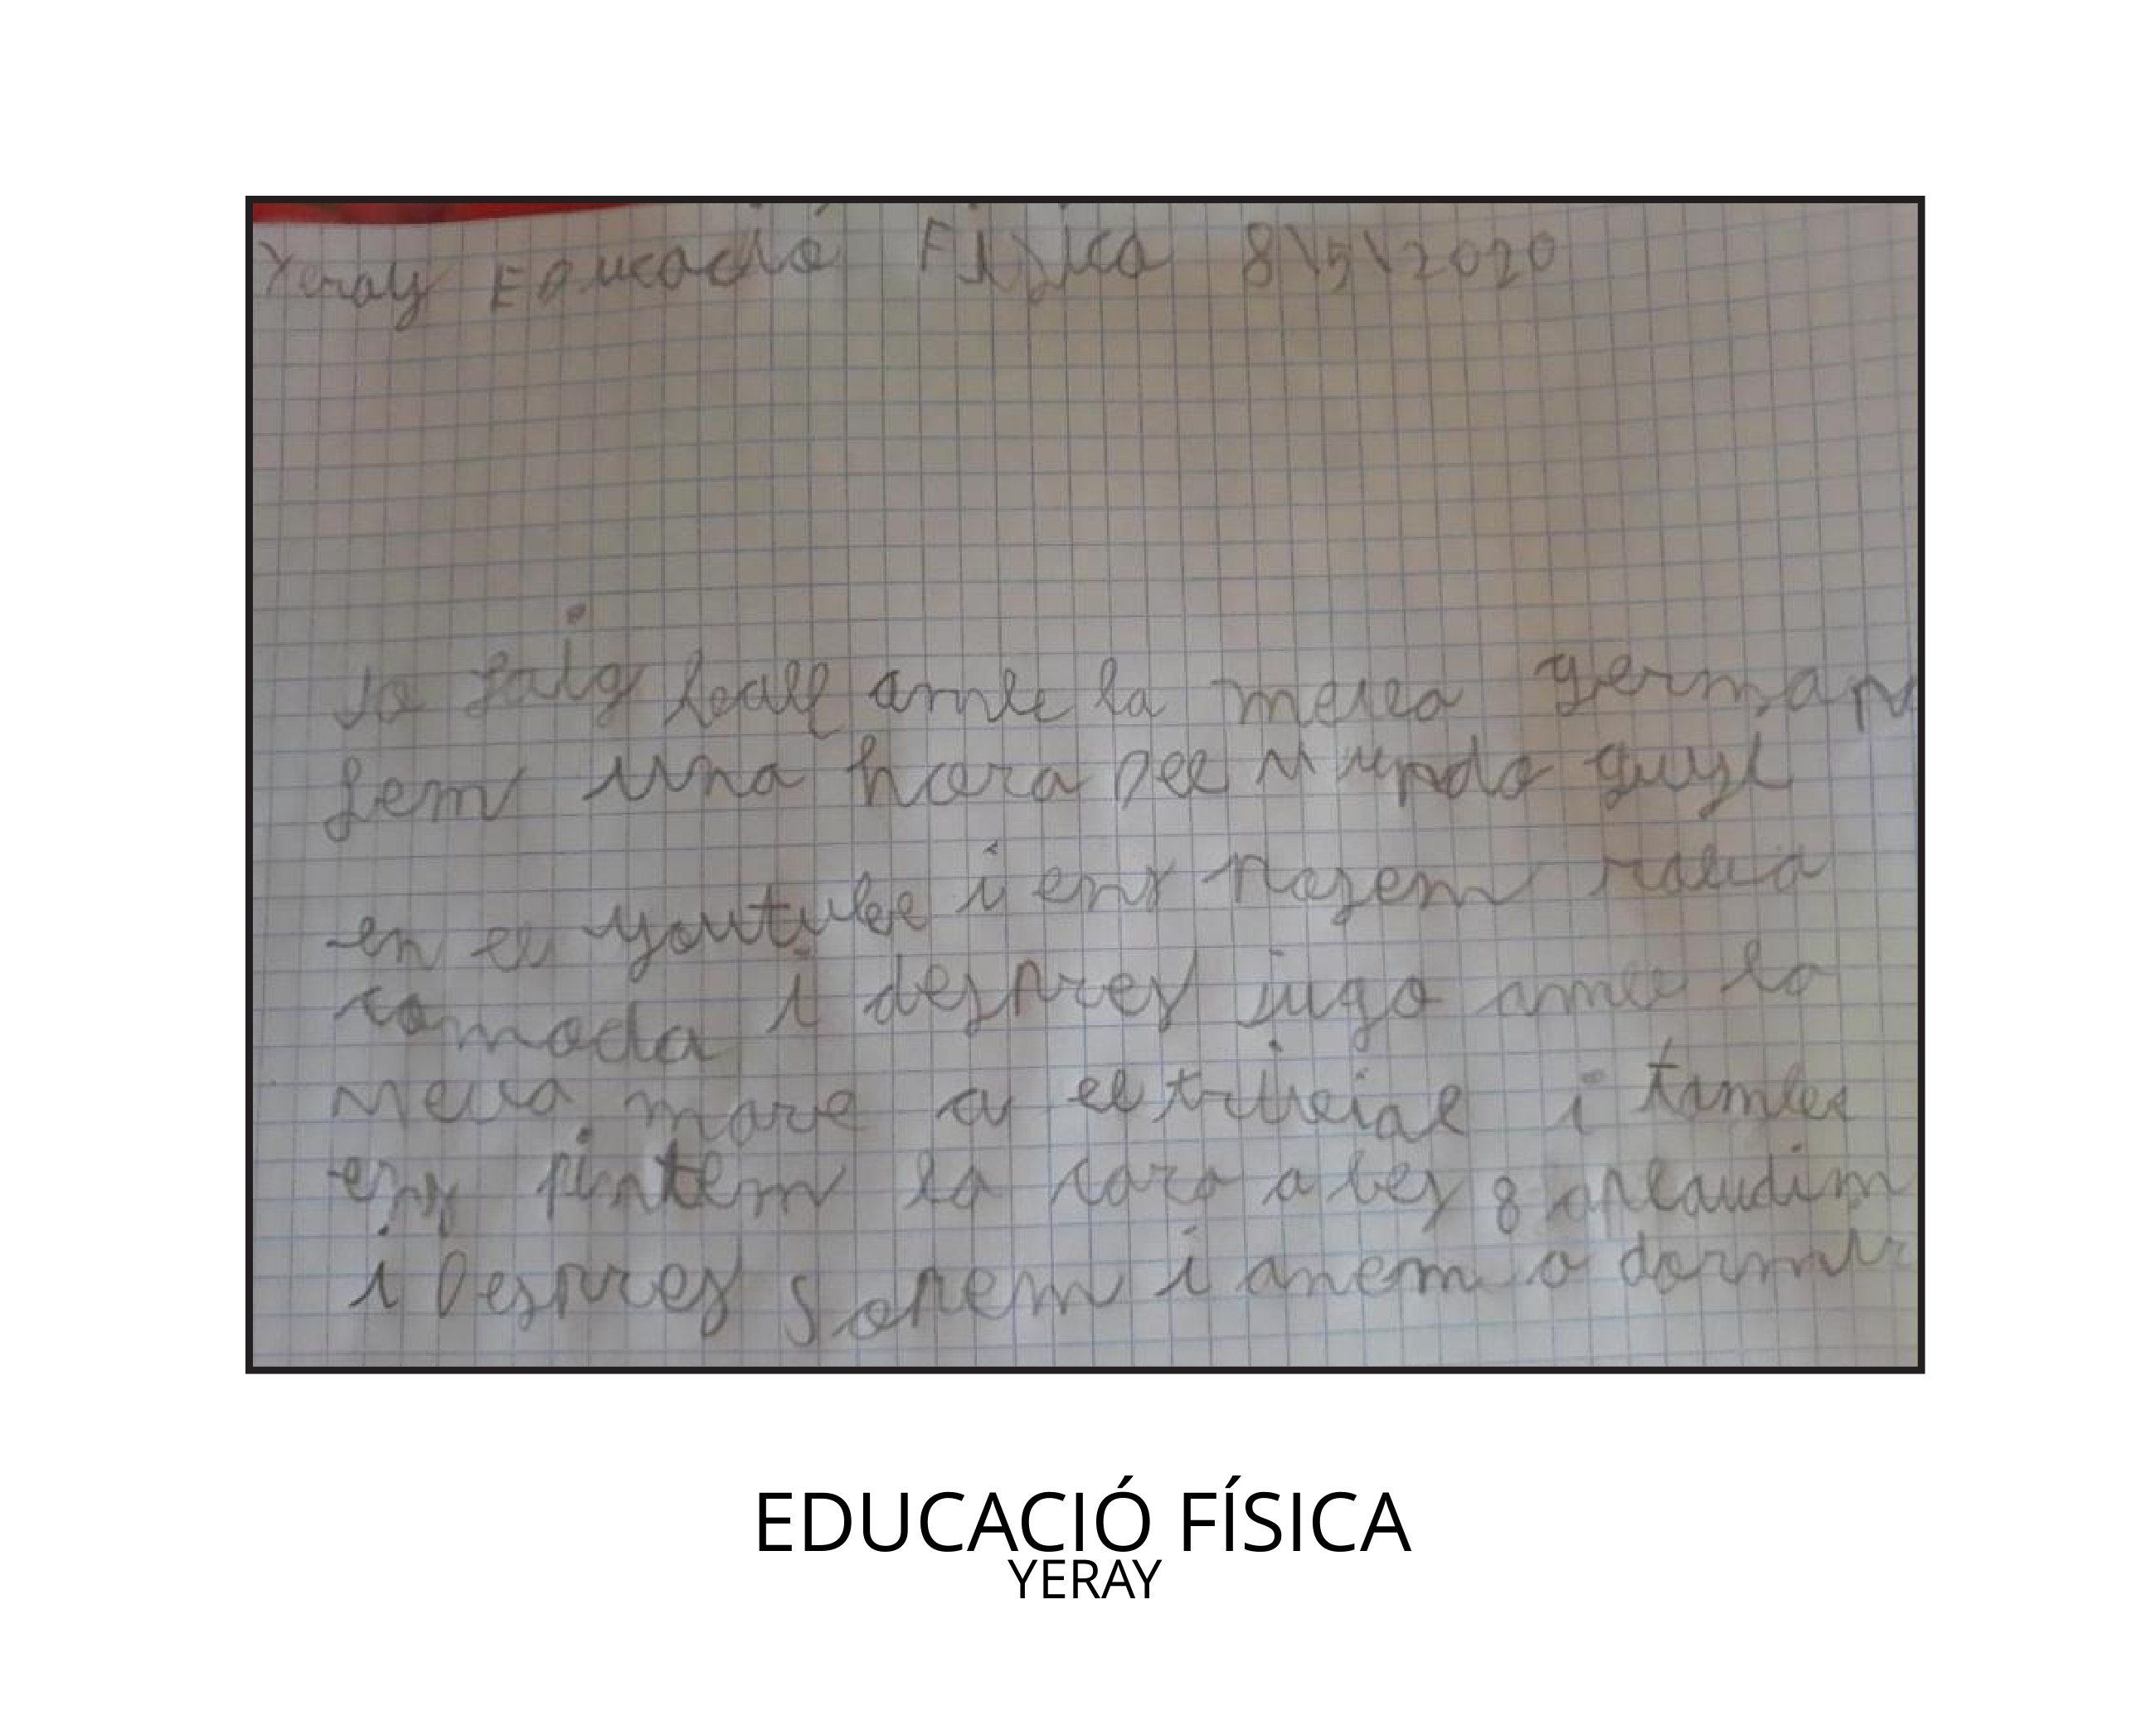 Yeray Educació Física 8\5\2020
Jo faig ball amb la meva german
fem una hora del Mundo guyt
en el youtube i ens posem roba
comoda i despres jugo amb la
meva mare a el trivial i tambe
ens pintem la cara a les 8 aplaudim
i Despres sopem i anem a dormir
EDUCACIÓ FÍSICA
YERAY